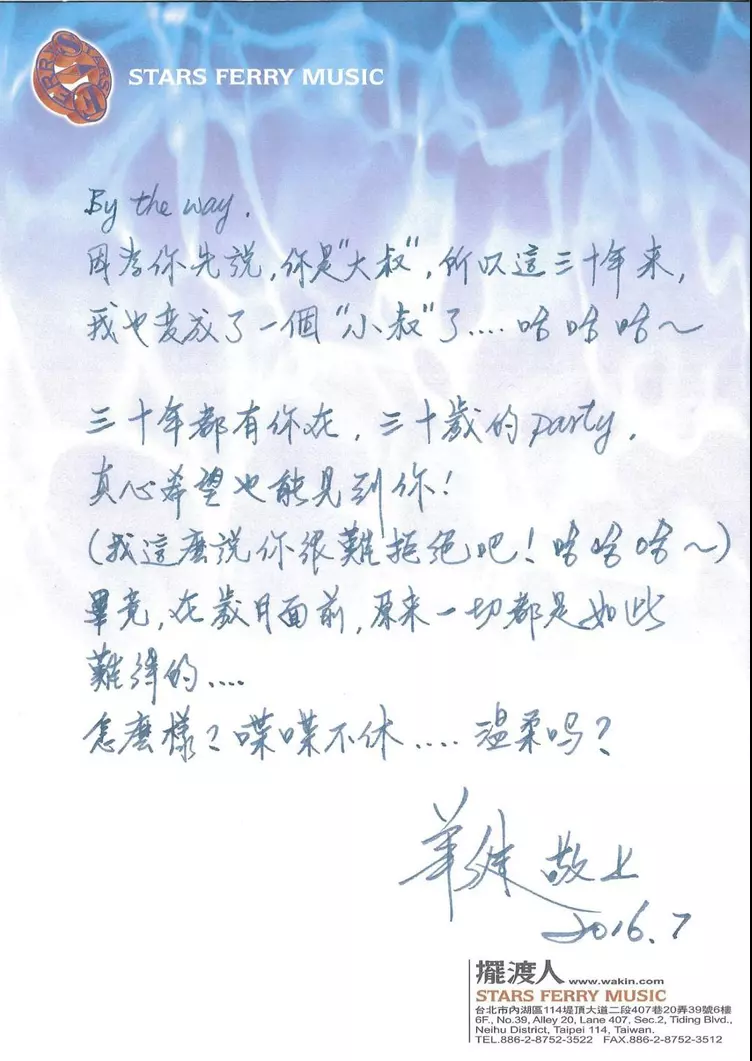 STARS FERRY MUSIC
By the way.
因為你先說,你是"大叔",所以這三十年來,
我也變成了一個"小叔"了....哈哈哈~
三十年都有你在,三十歲的party,
真心希望也能見到你!
(我這麼說你很難拒絕吧!哈哈哈~)
畢竟,在歲月面前,原來一切都是如此
難得的....
怎麼樣?喋喋不休....溫柔吗?
華健 敬上
2016.7
擺渡人 www.wakin.com
STARS FERRY MUSIC
台北市內湖區114堤頂大道二段407巷20弄39號6樓
6F., No.39, Alley 20, Lane 407, Sec.2, Tiding Blvd.,
Neihu District, Taipei 114, Taiwan.
TEL.886-2-8752-3522 FAX.886-2-8752-3512